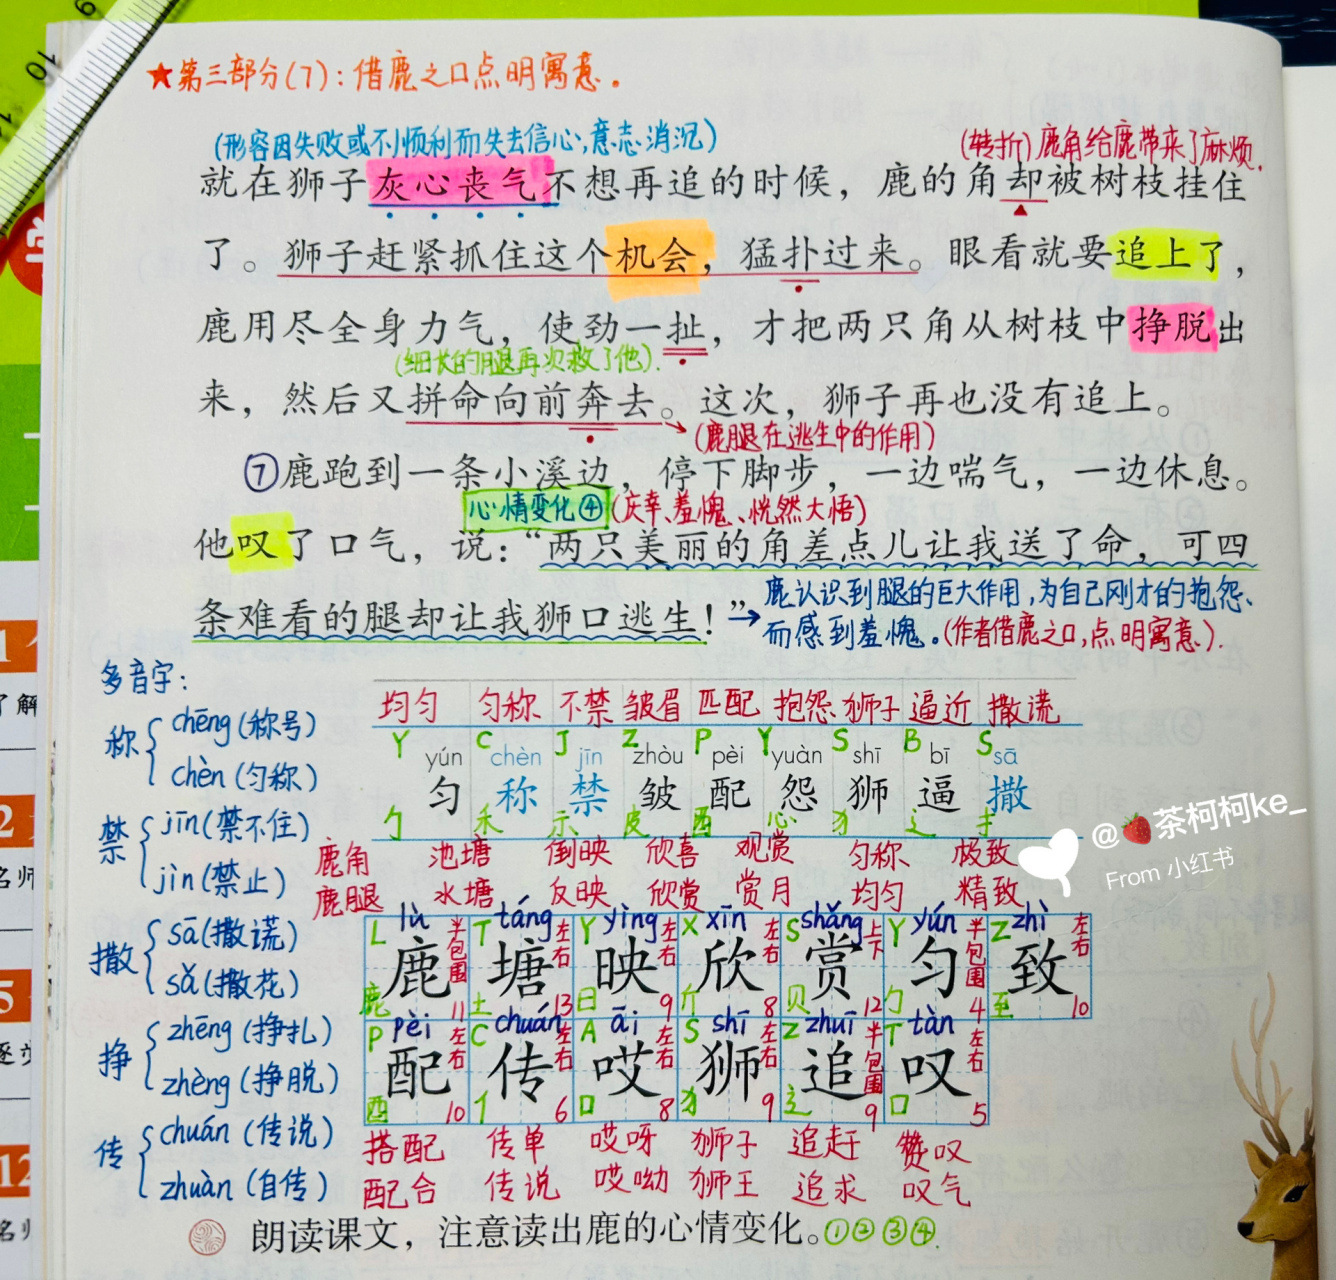 ★第三部分(7):借鹿之口点明寓意。
(形容因失败或不顺利而失去信心,意志消沉)
(转折)鹿角给鹿带来了麻烦.
就在狮子灰心丧气不想再追的时候，鹿的角却被树枝挂住
了。狮子赶紧抓住这个机会，猛扑过来。眼看就要追上了，
鹿用尽全身力气，使劲一扯，才把两只角从树枝中挣脱出
(细长的腿再次救了他).
来，然后又拼命向前奔去。这次，狮子再也没有追上。
(鹿腿在逃生中的作用)
⑦鹿跑到一条小溪边，停下脚步，一边喘气，一边休息。
心情变化④(庆幸、羞愧、恍然大悟)
他叹了口气，说：“两只美丽的角差点儿让我送了命，可四
条难看的腿却让我狮口逃生！”
→鹿认识到腿的巨大作用,为自己刚才的抱怨、
而感到羞愧。(作者借鹿之口,点明寓意).
多音字:
称 chēng(称号)
chèn(匀称)
禁 jīn(禁不住)
jìn(禁止)
撒 sā(撒谎)
sǎ(撒花)
挣 zhēng(挣扎)
zhèng(挣脱)
传 chuán(传说)
zhuàn(自传)
均匀 匀称 不禁 皱眉 匹配 抱怨 狮子 逼近 撒谎
Y C J Z P Y S B S
yún chèn jīn zhòu pèi yuàn shī bī sā
匀 称 禁 皱 配 怨 狮 逼 撒
勹 禾 示 皮 酉 心 犭 辶 扌
鹿角 池塘 倒映 欣喜 观赏 匀称 极致
鹿腿 水塘 反映 欣赏 赏月 均匀 精致
L lù 半包围 T táng 左右 Y yìng 左右 X xīn 左右 S shǎng 上下 Y yún 半包围 Z zhì 左右
鹿 塘 映 欣 赏 匀 致
鹿 11 土 13 日 9 斤 8 贝 12 勹 4 至 10
P pèi 左右 C chuán 左右 A āi 左右 S shī 左右 Z zhuī 半包围 T tàn 左右
配 传 哎 狮 追 叹
酉 10 亻 6 口 8 犭 9 辶 9 口 5
搭配 传单 哎呀 狮子 追赶 赞叹
配合 传说 哎呦 狮王 追求 叹气
朗读课文，注意读出鹿的心情变化。①②③④.
@🍓茶柯柯ke_
From 小红书
10
9
了解
2
名师
5
12
名师